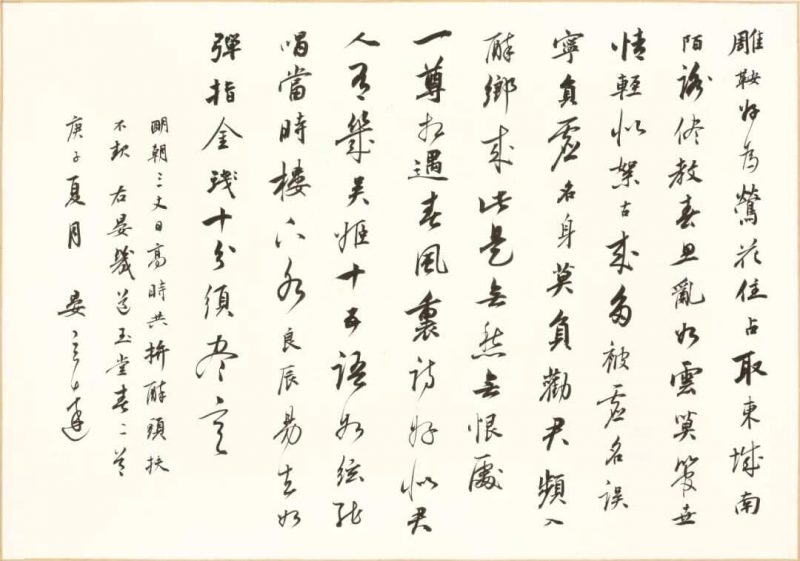 雕鞍好為鶯花住占取東城南
陌路儘教春思亂如雲莫管世
情輕似絮古來多被虛名誤
寧負虛名身莫負勸君頻入
醉鄉來此是無愁無恨處
一尊相遇春風裏詩好似君
人有幾吳姬十五語如絃能
唱當時樓下水良辰易去如
彈指金琖十分須盡意
明朝三丈日高時共拚醉頭扶
不起右晏幾道玉堂春二首
庚子夏月